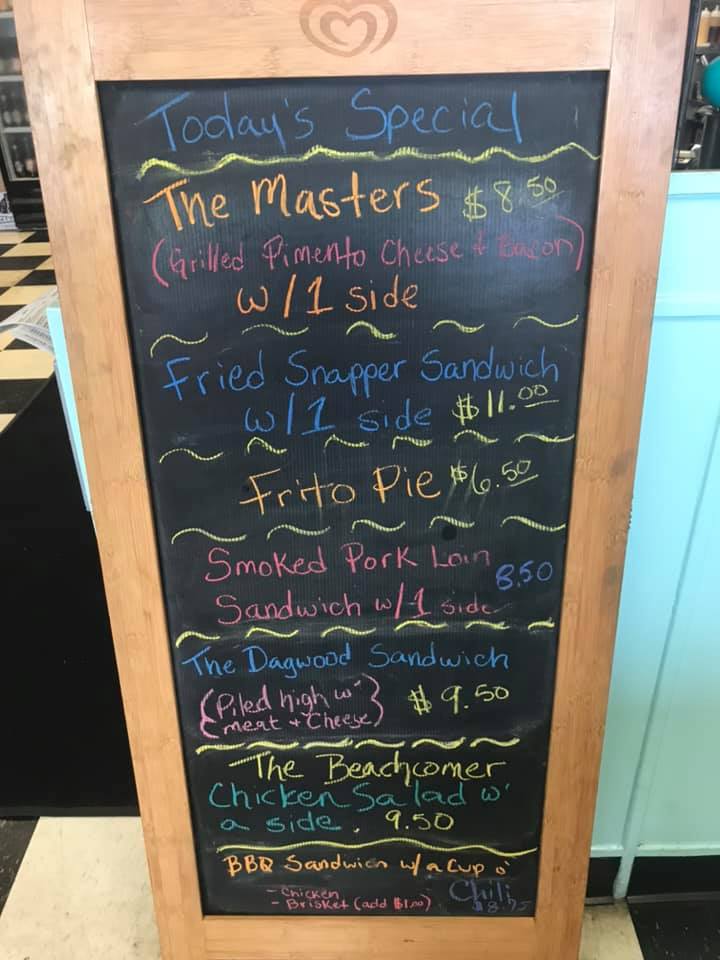 Today's Special
The Masters $8.50
(Grilled Pimento Cheese + Bacon)
w/1 side
Fried Snapper Sandwich
w/1 side $11.00
Frito Pie $6.50
Smoked Pork Loin
Sandwich w/1 side 8.50
The Dagwood Sandwich
(Piled high w'
meat + Cheese) $9.50
The Beachcomer
Chicken Salad w'
a side. 9.50
BBQ Sandwich w/ a Cup o'
Chili
- Chicken
- Brisket (add $1.00) $8.75